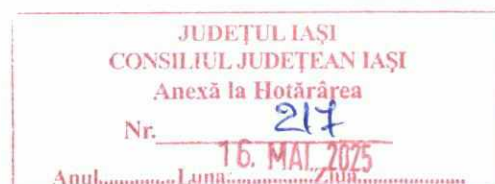 JUDEȚUL IAȘI
CONSILIUL JUDEȚEAN IAȘI
Anexă la Hotărârea
Nr. 217
16. MAI. 2025
Anul............Luna..............Ziua...................